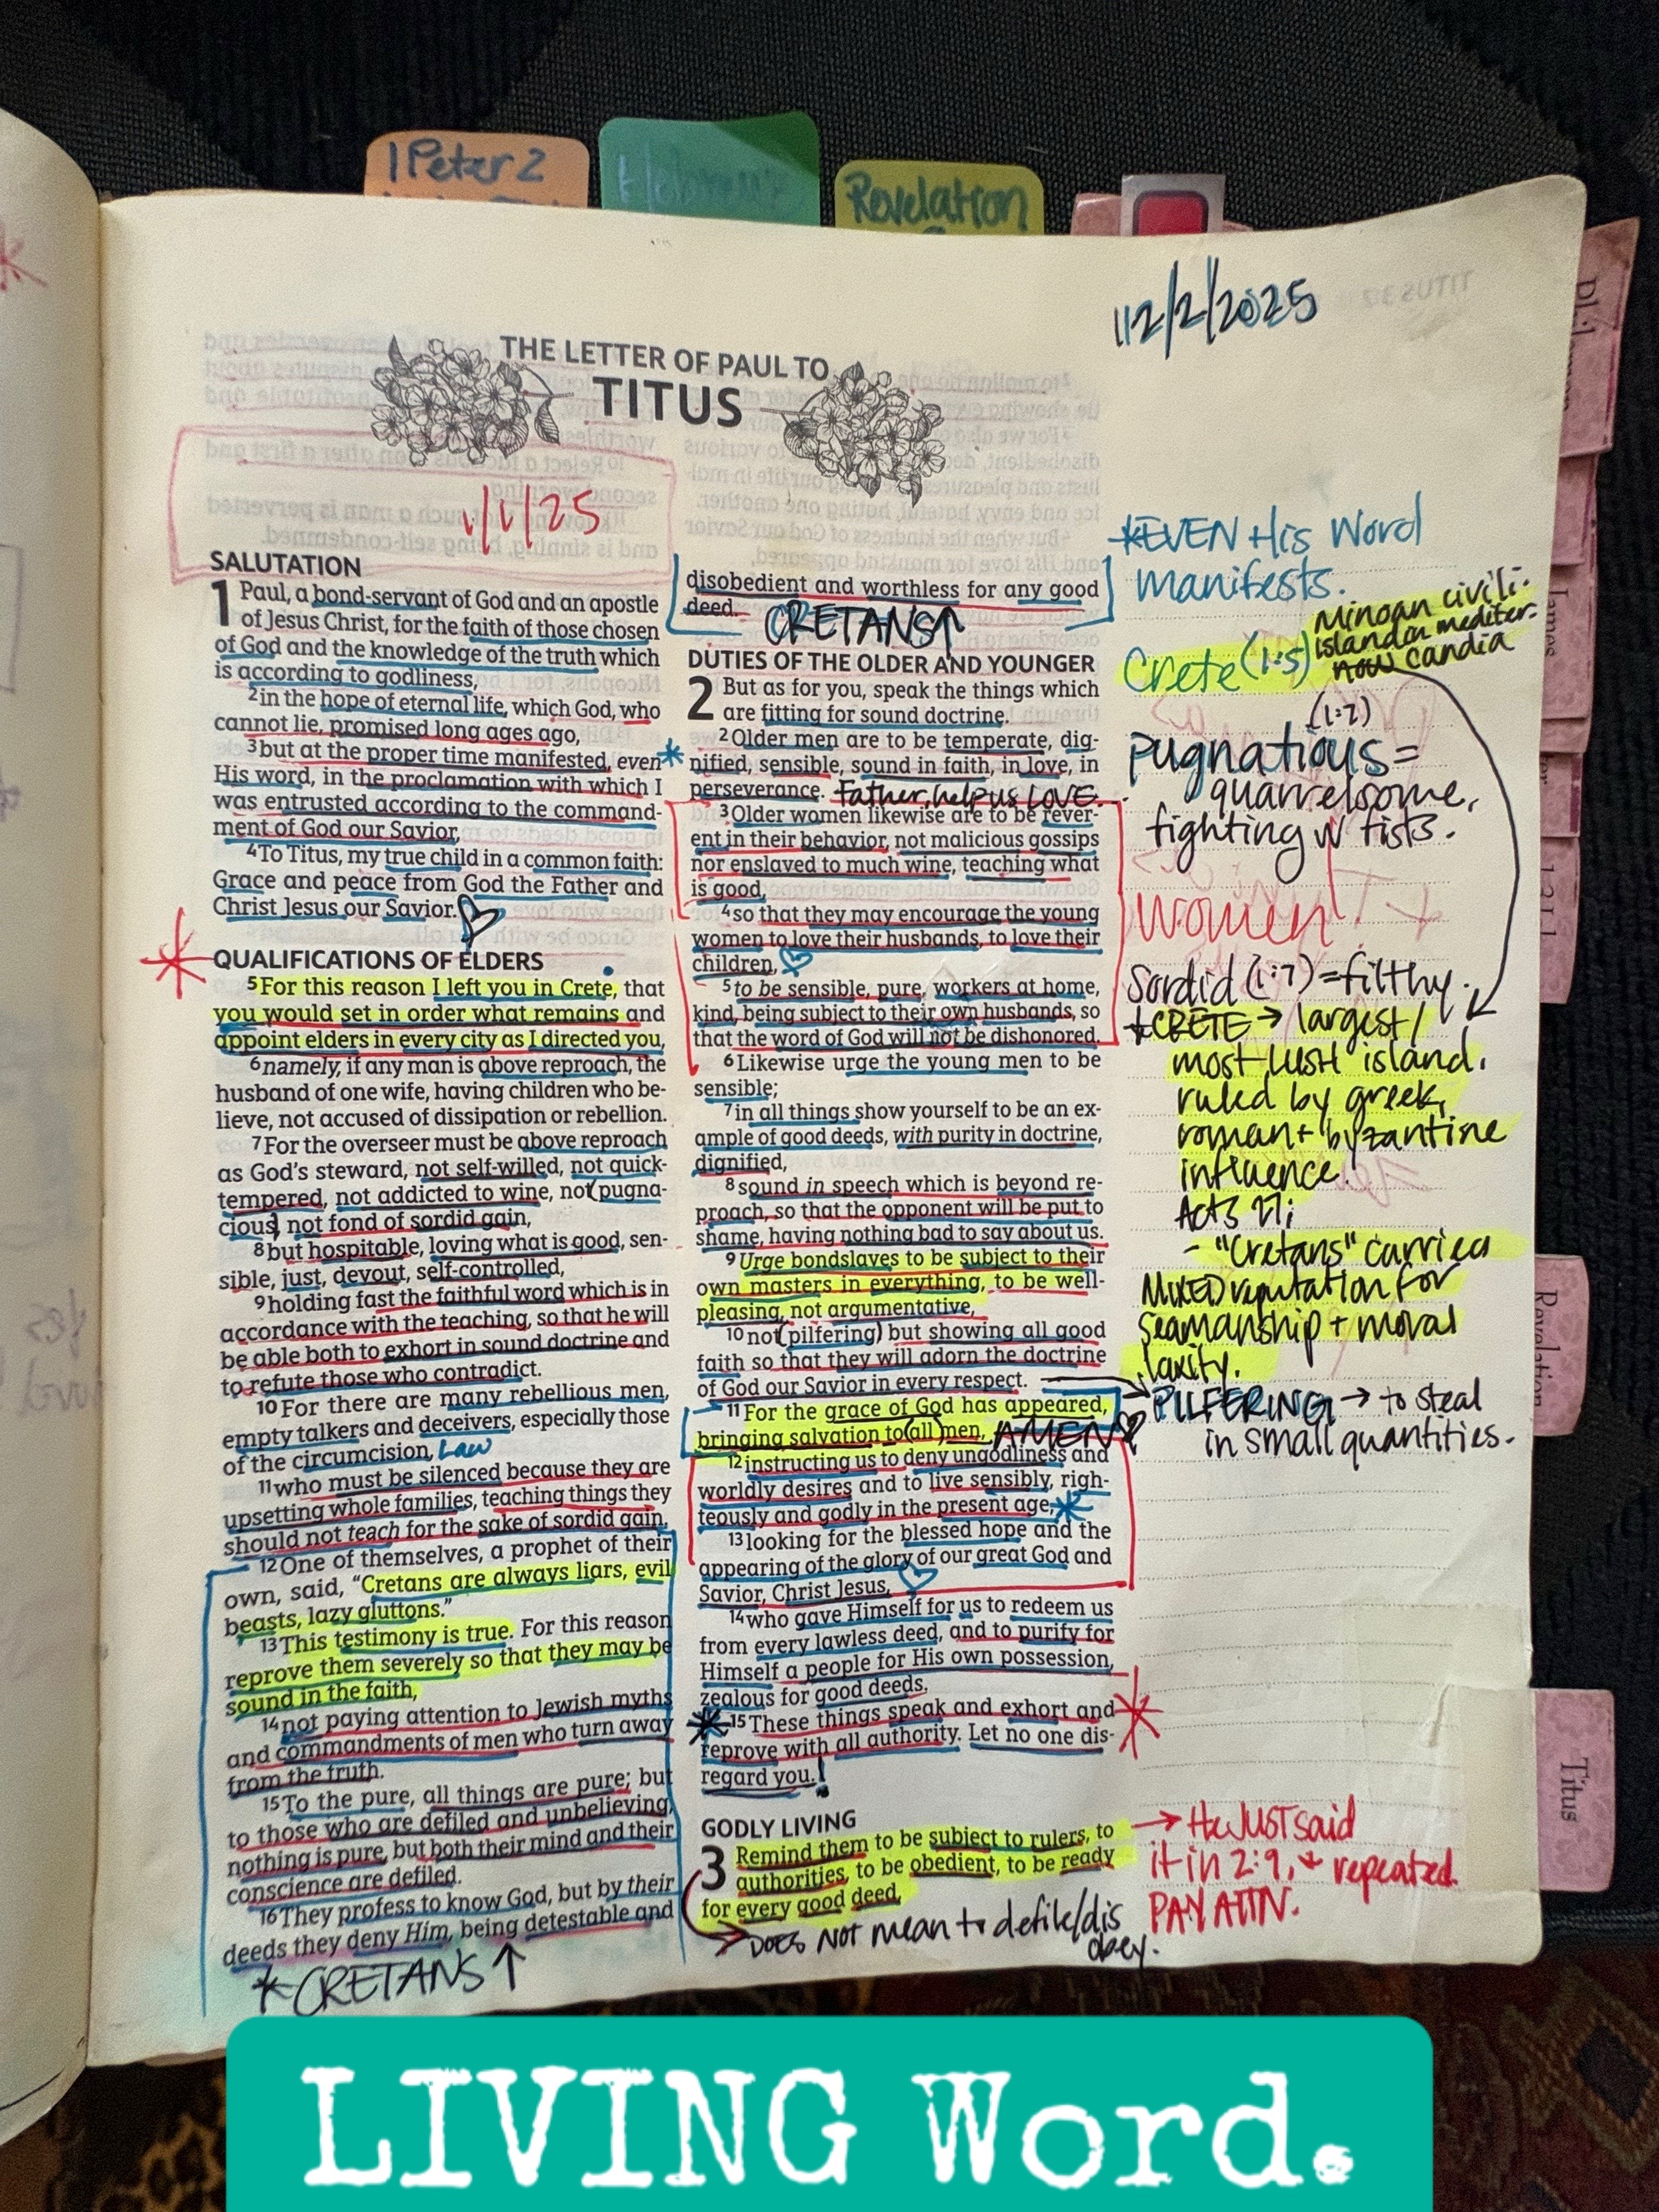 1 Peter 2
Hebrews
Revelation
12/2/2025
THE LETTER OF PAUL TO
TITUS
1/1/25
SALUTATION
1 Paul, a bond-servant of God and an apostle
of Jesus Christ, for the faith of those chosen
of God and the knowledge of the truth which
is according to godliness,
2 in the hope of eternal life, which God, who
cannot lie, promised long ages ago,
3 but at the proper time manifested, even
His word, in the proclamation with which I
was entrusted according to the command-
ment of God our Savior,
4 To Titus, my true child in a common faith:
Grace and peace from God the Father and
Christ Jesus our Savior.
QUALIFICATIONS OF ELDERS
5 For this reason I left you in Crete, that
you would set in order what remains and
appoint elders in every city as I directed you,
6 namely, if any man is above reproach, the
husband of one wife, having children who be-
lieve, not accused of dissipation or rebellion.
7 For the overseer must be above reproach
as God's steward, not self-willed, not quick-
tempered, not addicted to wine, not (pugna-
cious) not fond of sordid gain,
8 but hospitable, loving what is good, sen-
sible, just, devout, self-controlled,
9 holding fast the faithful word which is in
accordance with the teaching, so that he will
be able both to exhort in sound doctrine and
to refute those who contradict.
10 For there are many rebellious men,
empty talkers and deceivers, especially those
of the circumcision, Law
11 who must be silenced because they are
upsetting whole families, teaching things they
should not teach for the sake of sordid gain.
12 One of themselves, a prophet of their
own, said, "Cretans are always liars, evil
beasts, lazy gluttons."
13 This testimony is true. For this reason
reprove them severely so that they may be
sound in the faith,
14 not paying attention to Jewish myths
and commandments of men who turn away
from the truth.
15 To the pure, all things are pure; but
to those who are defiled and unbelieving,
nothing is pure, but both their mind and their
conscience are defiled.
16 They profess to know God, but by their
deeds they deny Him, being detestable and
* CRETANS ↑
disobedient and worthless for any good
deed.
CRETANS ↑
DUTIES OF THE OLDER AND YOUNGER
2 But as for you, speak the things which
are fitting for sound doctrine.
2 Older men are to be temperate, dig-
nified, sensible, sound in faith, in love, in
perseverance. Father, help us LOVE.
3 Older women likewise are to be rever-
ent in their behavior, not malicious gossips
nor enslaved to much wine, teaching what
is good,
4 so that they may encourage the young
women to love their husbands, to love their
children,
5 to be sensible, pure, workers at home,
kind, being subject to their own husbands, so
that the word of God will not be dishonored.
6 Likewise urge the young men to be
sensible;
7 in all things show yourself to be an ex-
ample of good deeds, with purity in doctrine,
dignified,
8 sound in speech which is beyond re-
proach, so that the opponent will be put to
shame, having nothing bad to say about us.
9 Urge bondslaves to be subject to their
own masters in everything, to be well-
pleasing, not argumentative,
10 not (pilfering) but showing all good
faith so that they will adorn the doctrine
of God our Savior in every respect.
11 For the grace of God has appeared,
bringing salvation to (all) men, AMEN
12 instructing us to deny ungodliness and
worldly desires and to live sensibly, righ-
teously and godly in the present age,
13 looking for the blessed hope and the
appearing of the glory of our great God and
Savior, Christ Jesus,
14 who gave Himself for us to redeem us
from every lawless deed, and to purify for
Himself a people for His own possession,
zealous for good deeds.
15 These things speak and exhort and
reprove with all authority. Let no one dis-
regard you. !
GODLY LIVING
3 Remind them to be subject to rulers, to
authorities, to be obedient, to be ready
for every good deed,
→ DOES NOT mean to defile/dis
obey.
*EVEN His Word
manifests.
Crete (1:5)
Minoan civili-
island in mediter.
now candia
(1:7)
pugnatious =
quarrelsome,
fighting w/ fists.
women
Sordid (1:7) = filthy.
*CRETE → largest/
most LUSH island.
ruled by greek,
roman + byzantine
influence.
Acts 27;
- "Cretans" carried
MIXED reputation for
Seamanship + moral
laxity.
PILFERING → to steal
in small quantities.
→ He JUST said
it in 2:9, + repeated.
PAY ATTN.
James
Revelation
Titus
LIVING Word.